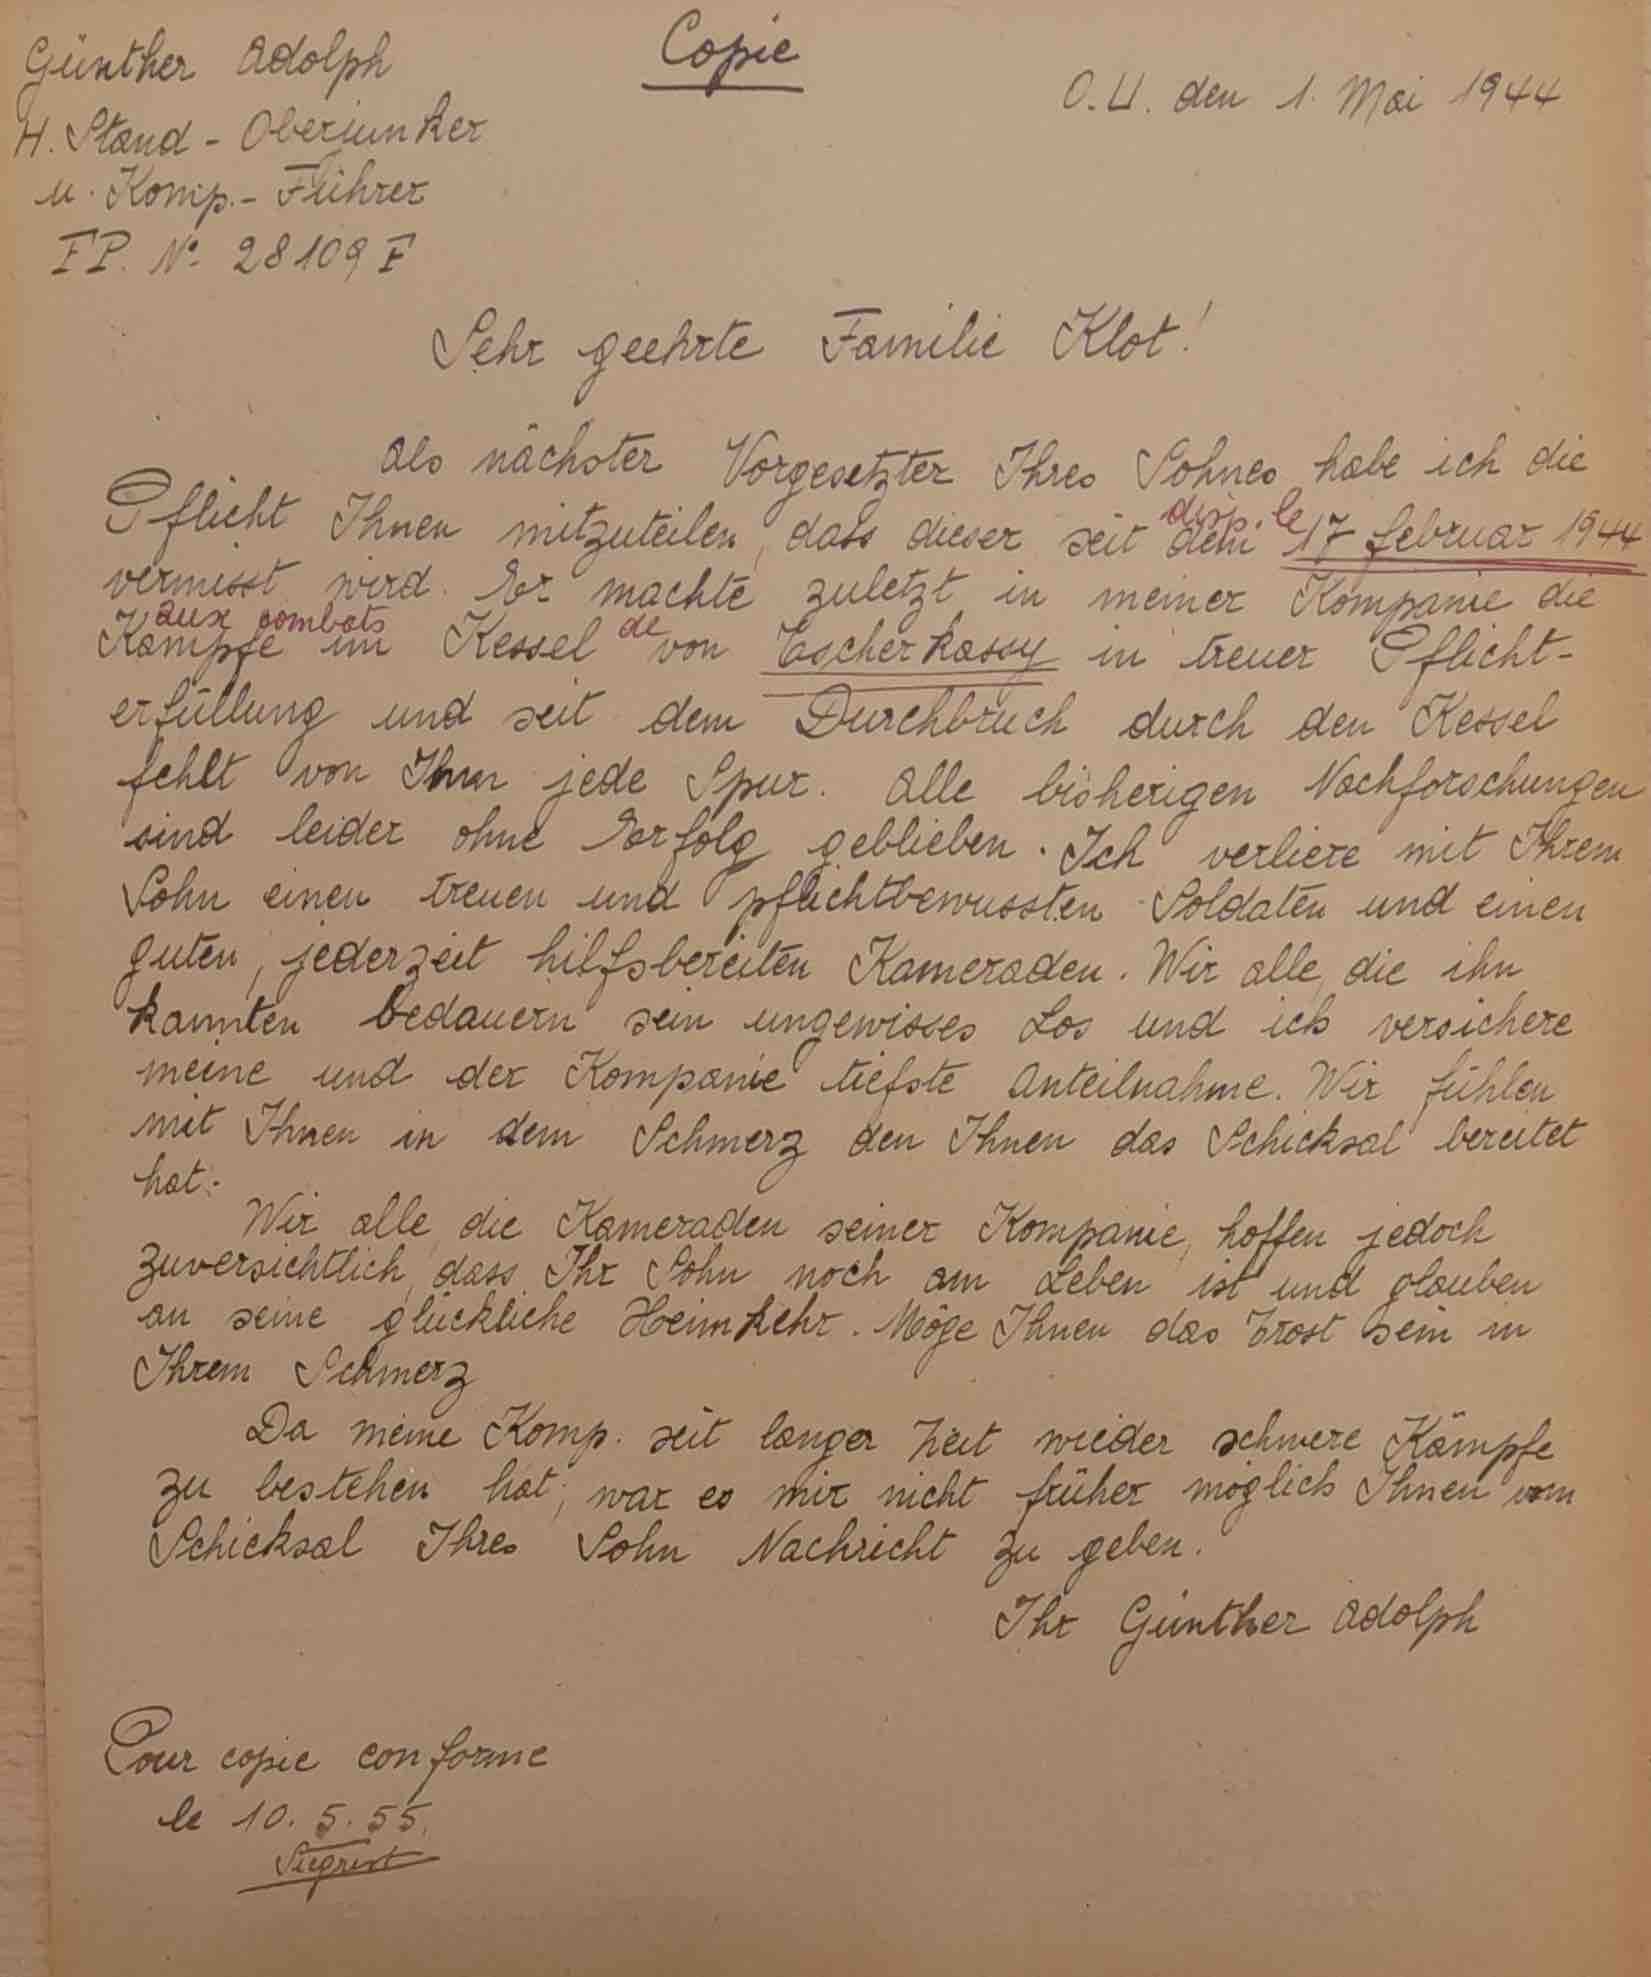 Copie
Günther Adolph
O.U. den 1. Mai 1944
H. Stand - Oberjunker
u. Komp.- Führer
FP. No. 28109 F
Sehr geehrte Familie Klot!
Als nächster Vorgesetzter Ihres Sohnes habe ich die
Pflicht Ihnen mitzuteilen, dass dieser seit dem 17 februar 1944
disp. le
vermisst wird. Er machte zuletzt in meiner Kompanie die
aux combats de
Kämpfe im Kessel von Tscherkassy in treuer Pflicht-
erfüllung und seit dem Durchbruch durch den Kessel
fehlt von Ihm jede Spur. Alle bisherigen Nachforschungen
sind leider ohne Erfolg geblieben. Ich verliere mit Ihrem
Sohn einen treuen und pflichtbewussten Soldaten und einen
guten, jederzeit hilfsbereiten Kameraden. Wir alle, die ihn
kannten bedauern sein ungewisses Los und ich versichere
meine und der Kompanie tiefste Anteilnahme. Wir fühlen
mit Ihnen in dem Schmerz den Ihnen das Schicksal bereitet
hat.
Wir alle, die Kameraden seiner Kompanie, hoffen jedoch
zuversichtlich, dass Ihr Sohn noch am Leben ist und glauben
an seine glückliche Heimkehr. Möge Ihnen das Trost sein in
Ihrem Schmerz
Da meine Komp. seit langer Zeit wieder schwere Kämpfe
zu bestehen hat, war es mir nicht früher möglich Ihnen vom
Schicksal Ihres Sohn Nachricht zu geben.
Ihr Günther Adolph
Pour copie conforme
le 10. 5. 55.
Siegrist